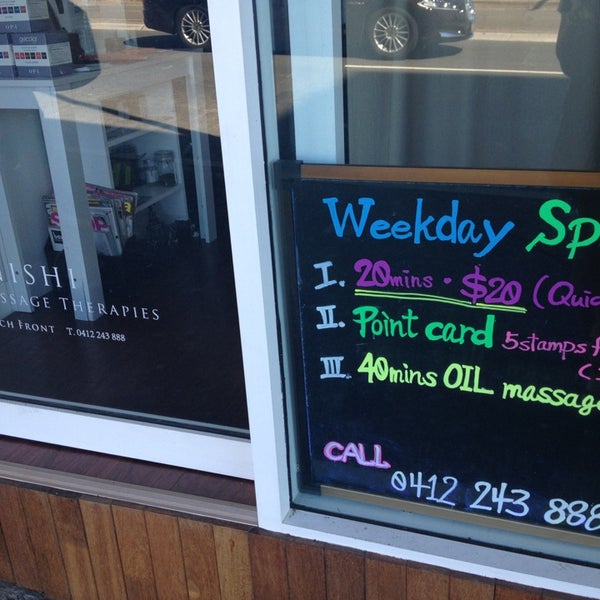 OPI
NISHI
SSAGE THERAPIES
CH FRONT T. 0412 243 888
Weekday Sp
I. 20mins · $20 (Quic
II. Point card 5stamps f
III. 40mins OIL massage
CALL
0412 243 888